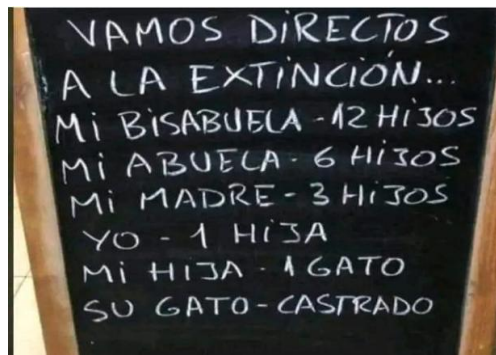 VAMOS DiRECTOS
A LA EXTiNCiÓN...
Mi BISABUELA - 12 HiJOS
Mi ABUELA - 6 HiJOS
Mi MADRE - 3 HiJOS
YO - 1 HiJA
Mi HIJA - 1 GATO
SU GATO - CASTRADO